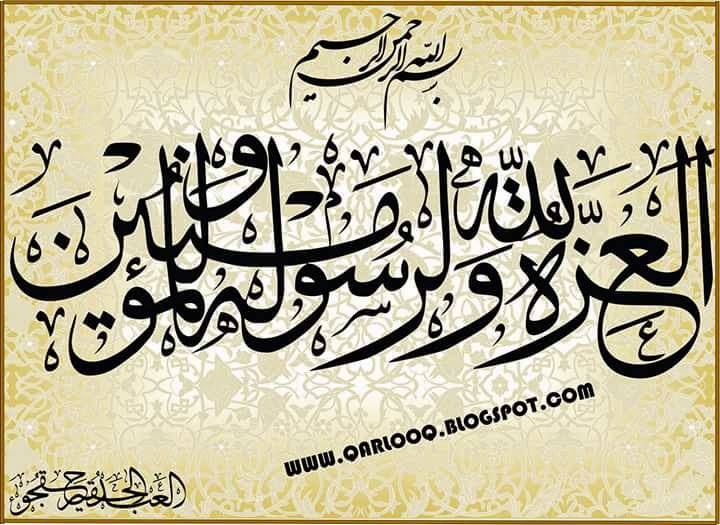 بسم الله الرحمن الرحيم
العزه لله ولرسوله وللمؤمنين
WWW.QARLOOQ.BLOGSPOT.COM